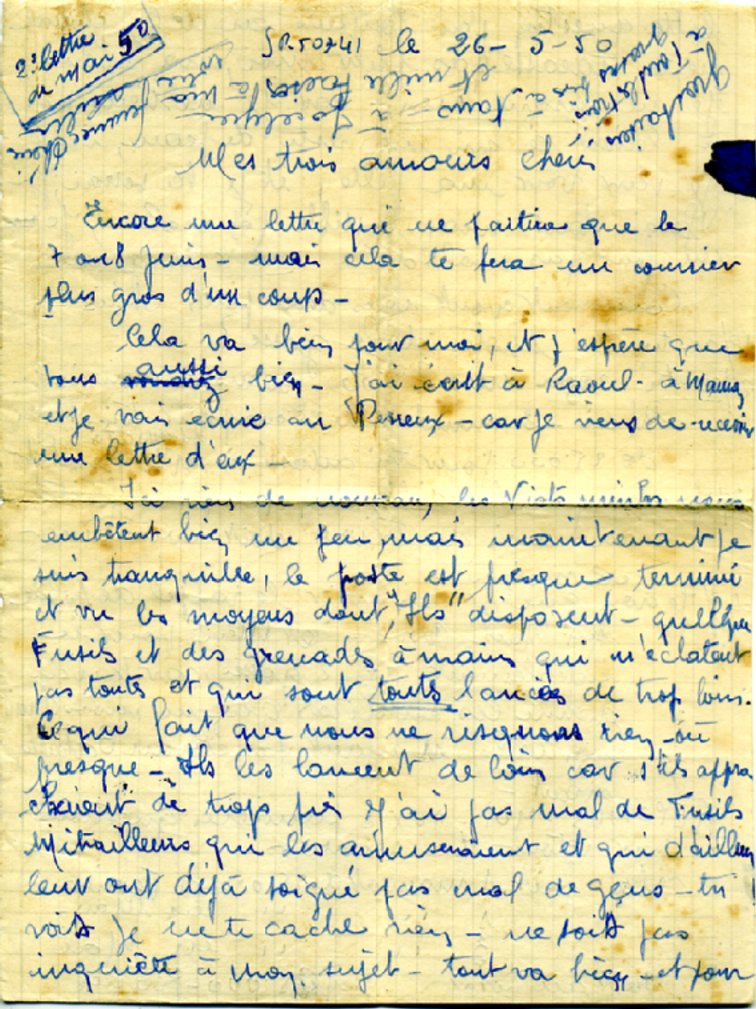 2e lettre
de mai 50
SP.50741 le 26-5-50
Mes trois amours chéris
Encore une lettre qui ne partira que le
7 ou 8 Juin - mais cela te fera un courrier
plus gros d'un coup -
Cela va bien pour moi, et j'espère que
vous aussi bien - J'ai écrit à Raoul - à Maman
et je vais écrire au Perreux - car je viens de recevoir
une lettre d'eux -
Ici rien de nouveau, les Viets minhs nous
embêtent bien un peu, mais maintenant je
suis tranquille, le poste est presque terminé
et vu les moyens dont "Ils" disposent - quelques
Fusils et des grenades à mains qui n'éclatent
pas toutes et qui sont toutes lancées de trop loin.
Ce qui fait que nous ne risquons rien - où
presque - Ils les lancent de loin car s'ils appro
chaient de trops près j'ai pas mal de Fusils
Mitrailleurs qui les amuseraient et qui d'ailleurs
leur ont déjà soigné pas mal de gens - tu
vois je ne te cache rien - ne sois pas
inquiète à mon sujet - tout va bien - et pour